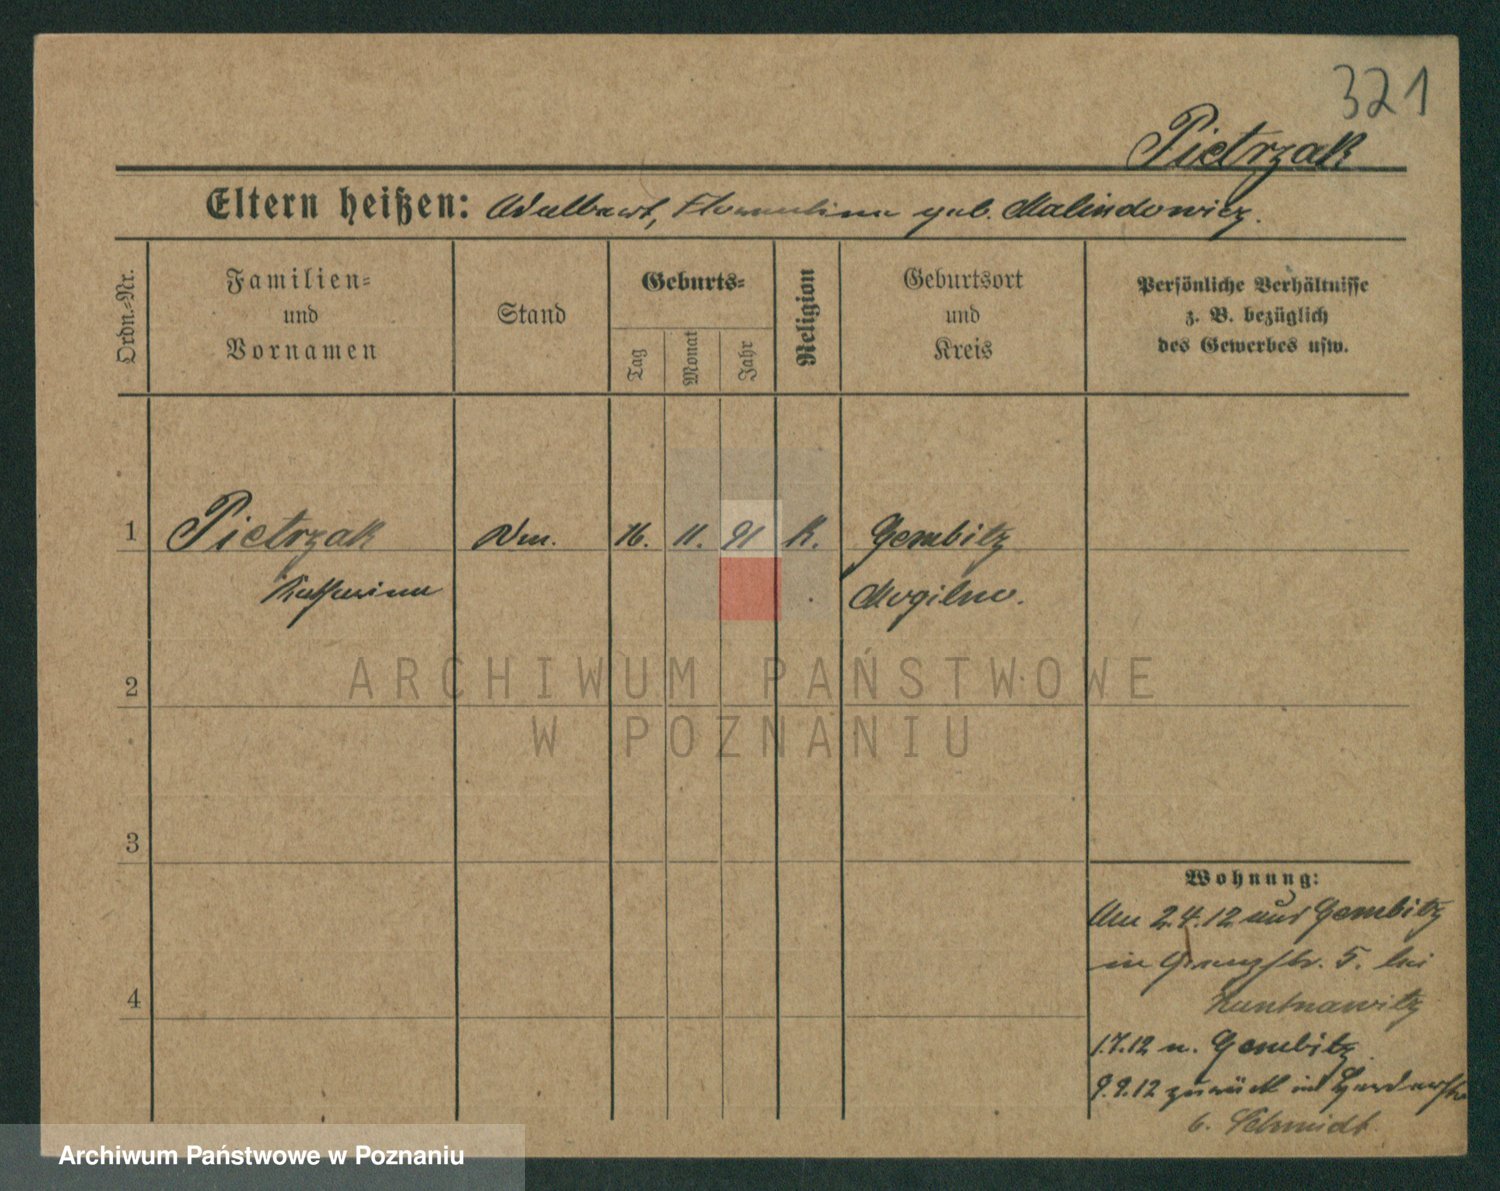 321
Pietrzak
Eltern heißen: Adalbert, geb. Malindowicz.
Ordn.-Nr.
Familien-
und
Vornamen
Stand
Geburts-
Tag
Monat
Jahr
Religion
Geburtsort
und
Kreis
Persönliche Verhältnisse
z. B. bezüglich
des Gewerbes usw.
1 Pietrzak 16. 11. 91 K. Gembitz
Katharina Mogilno.
2
ARCHIWUM PAŃSTWOWE
W POZNANIU
3
Wohnung:
Am 2.4.12 aus Gembitz
in 5. bei
4
1.7.12 n. Gembitz
9.9.12 zurück in
b. Schmidt
Archiwum Państwowe w Poznaniu